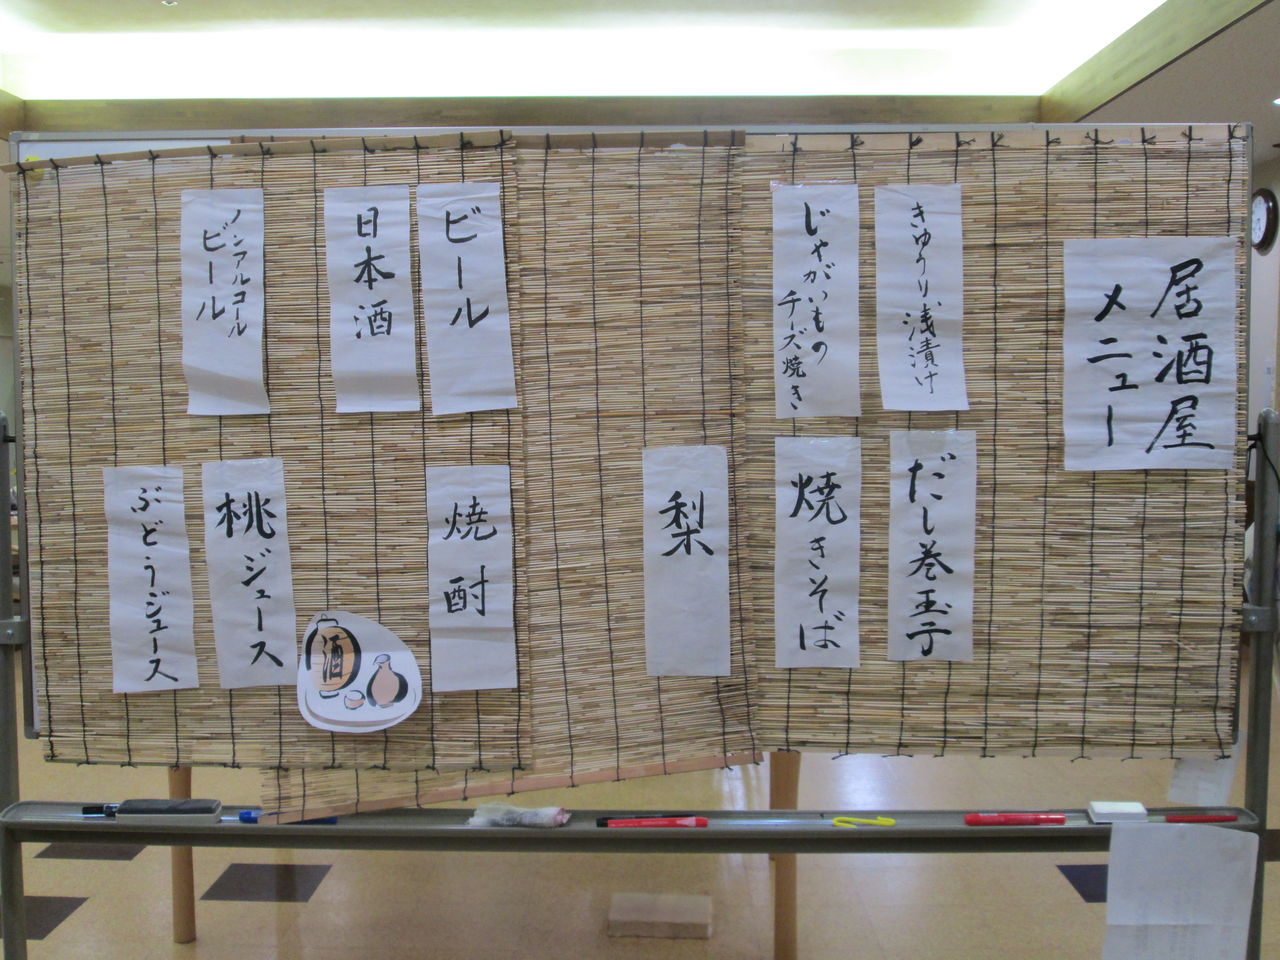 居酒屋
メニュー
きゅうり浅漬け
だし巻玉子
じゃがいもの
チーズ焼き
焼きそば
梨
ビール
焼酎
日本酒
酒
ノンアルコール
ビール
桃ジュース
ぶどうジュース